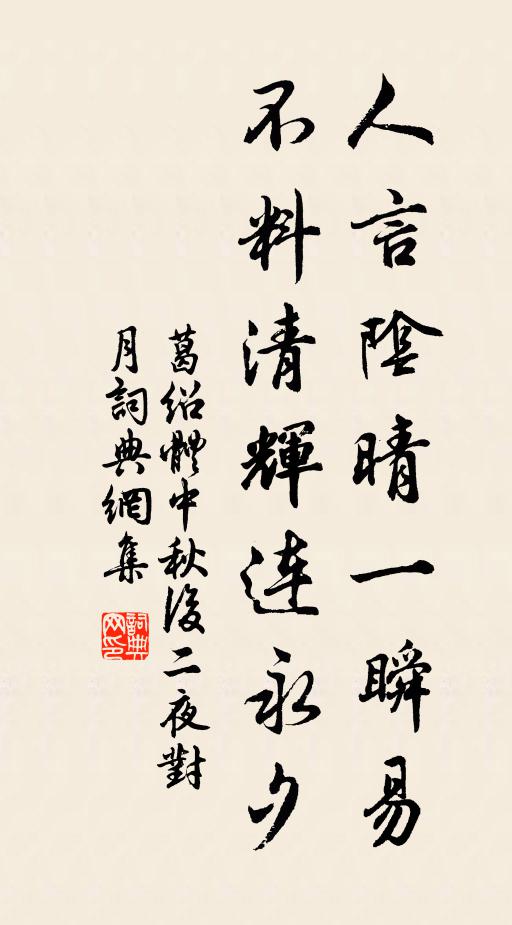 人言陰晴一瞬易
不料清輝連永夕
葛紹體中秋後二夜對
月詞典網集
詞典
网印